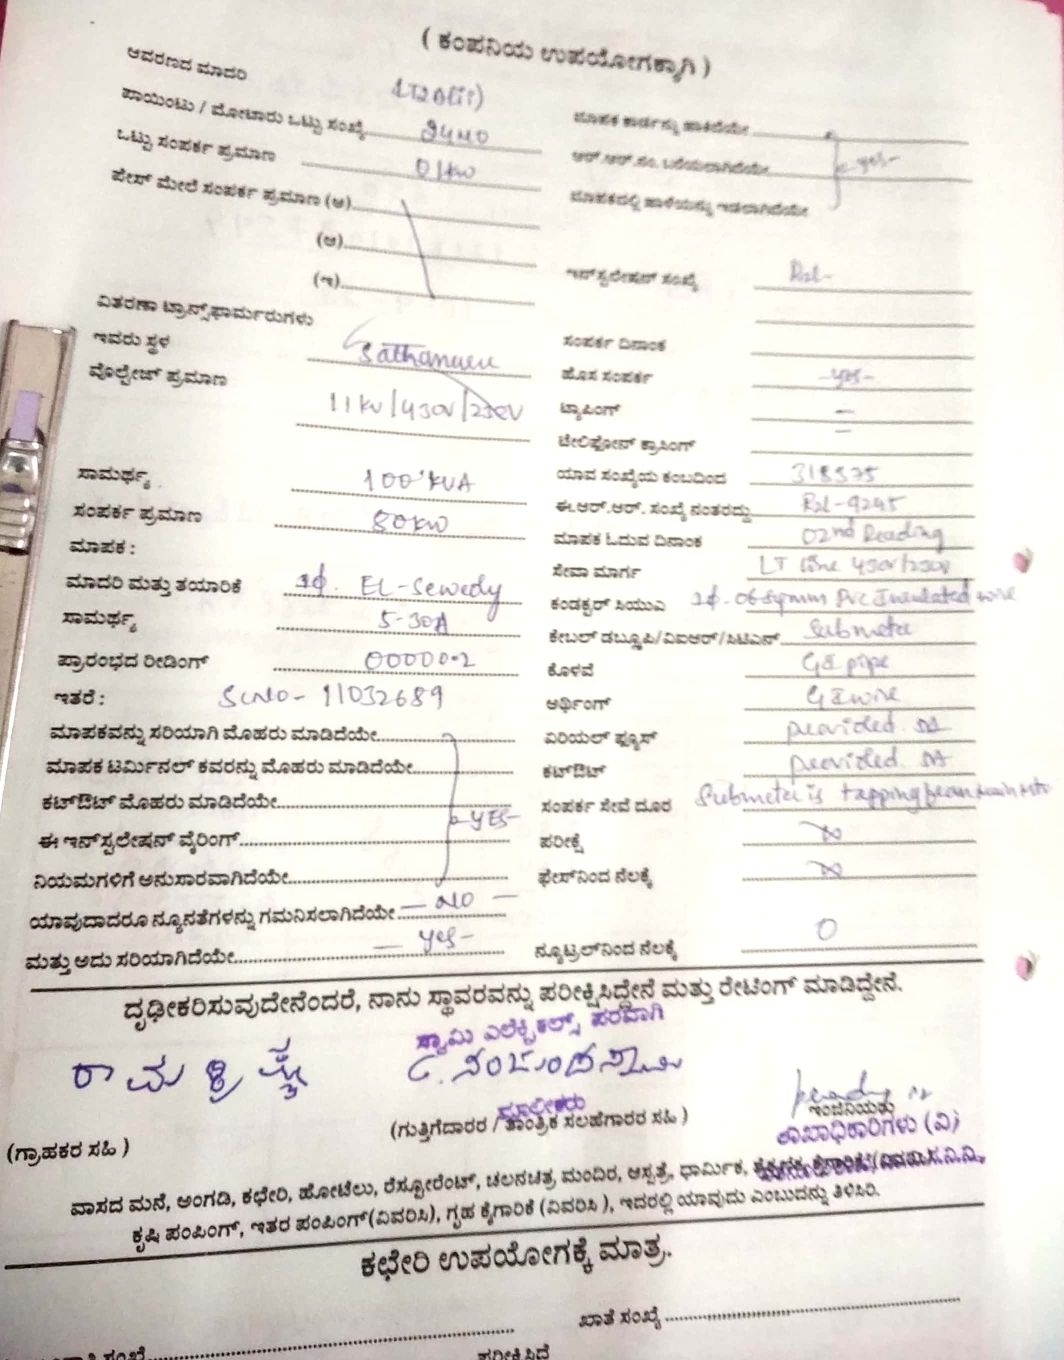 ( ಕಂಪನಿಯ ಉಪಯೋಗಕ್ಕಾಗಿ )
ಆವರಣದ ಮಾದರಿ
ಪಾಯಿಂಟು / ಮೋಟಾರು ಒಟ್ಟು ಸಂಖ್ಯೆ
ಮಾಪಕ ಕಾರ್ಡನ್ನು ಹಾಕಿದೆಯೇ
ಒಟ್ಟು ಸಂಪರ್ಕ ಪ್ರಮಾಣ 01kw
ಆರ್.ಆರ್.ನಂ. ಬರೆಯಲಾಗಿದೆಯೇ -yes-
ಪೇಸ್ ಮೇಲೆ ಸಂಪರ್ಕ ಪ್ರಮಾಣ (ಅ)
ಮಾಪಕದಲ್ಲಿ ಹಾಳೆಯನ್ನು ಇಡಲಾಗಿದೆಯೇ
(ಆ)
(ಇ)
ಇನ್‌ಸ್ಟಲೇಷನ್ ಸಂಖ್ಯೆ
ವಿತರಣಾ ಟ್ರಾನ್ಸ್‌ಫಾರ್ಮರುಗಳು
ಇವರು ಸ್ಥಳ Sathanuru
ಸಂಪರ್ಕ ದಿನಾಂಕ
ವೊಲ್ಟೇಜ್ ಪ್ರಮಾಣ 11kv/430v/230v
ಹೊಸ ಸಂಪರ್ಕ -yes-
ಟ್ಯಾಪಿಂಗ್ -
ಟೆಲಿಫೋನ್ ಕ್ರಾಸಿಂಗ್ -
ಸಾಮರ್ಥ್ಯ 100 KVA
ಯಾವ ಸಂಖ್ಯೆಯ ಕಂಬದಿಂದ
ಸಂಪರ್ಕ ಪ್ರಮಾಣ 80kw
ಈ.ಆರ್.ಆರ್. ಸಂಖ್ಯೆ ನಂತರದ್ದು
ಮಾಪಕ :
ಮಾಪಕ ಓದುವ ದಿನಾಂಕ 02nd Reading
ಮಾದರಿ ಮತ್ತು ತಯಾರಿಕೆ 1ϕ. EL-Sewedy
ಸೇವಾ ಮಾರ್ಗ LT line 430v/230v
ಸಾಮರ್ಥ್ಯ 5-30A
ಕಂಡಕ್ಟರ್ ಸಿಯುಎ 1ϕ.06 sqmm Pvc Insulated wire
ಕೇಬಲ್ ಡಬ್ಲೂಪಿ/ವಿಐಆರ್/ಸಿಟಿಎಸ್ Submeter
ಪ್ರಾರಂಭದ ರೀಡಿಂಗ್ 000000.2
ಕೊಳವೆ GI pipe
ಇತರೆ : SLNO- 11032689
ಅರ್ಥಿಂಗ್ GI wire
ಮಾಪಕವನ್ನು ಸರಿಯಾಗಿ ಮೊಹರು ಮಾಡಿದೆಯೇ
ಏರಿಯಲ್ ಫ್ಯೂಸ್ provided.
ಮಾಪಕ ಟರ್ಮಿನಲ್ ಕವರನ್ನು ಮೊಹರು ಮಾಡಿದೆಯೇ
ಕಟ್‌ಔಟ್ provided.
ಕಟ್‌ಔಟ್ ಮೊಹರು ಮಾಡಿದೆಯೇ -YES-
ಸಂಪರ್ಕ ಸೇವೆ ದೂರ Submeter is tapping from main
ಈ ಇನ್‌ಸ್ಟಲೇಷನ್ ವೈರಿಂಗ್
ಪರೀಕ್ಷೆ ∞
ನಿಯಮಗಳಿಗೆ ಅನುಸಾರವಾಗಿದೆಯೇ
ಫೇಸ್‌ನಿಂದ ನೆಲಕ್ಕೆ ∞
ಯಾವುದಾದರೂ ನ್ಯೂನತೆಗಳನ್ನು ಗಮನಿಸಲಾಗಿದೆಯೇ - NO -
ಮತ್ತು ಅದು ಸರಿಯಾಗಿದೆಯೇ - yes-
ನ್ಯೂಟ್ರಲ್‌ನಿಂದ ನೆಲಕ್ಕೆ 0
ದೃಢೀಕರಿಸುವುದೇನೆಂದರೆ, ನಾನು ಸ್ಥಾವರವನ್ನು ಪರೀಕ್ಷಿಸಿದ್ದೇನೆ ಮತ್ತು ರೇಟಿಂಗ್ ಮಾಡಿದ್ದೇನೆ.
ಸ್ವಾಮಿ ಎಲೆಕ್ಟ್ರಿಕಲ್ಸ್ ಪರವಾಗಿ
ಮಾಲೀಕರು
(ಗ್ರಾಹಕರ ಸಹಿ )
(ಗುತ್ತಿಗೆದಾರರ / ತಾಂತ್ರಿಕ ಸಲಹೆಗಾರರ ಸಹಿ )
ಇಂಜಿನಿಯರು
ಶಾಖಾಧಿಕಾರಿಗಳು (ವಿ)
ವಾಸದ ಮನೆ, ಅಂಗಡಿ, ಕಛೇರಿ, ಹೋಟೆಲು, ರೆಸ್ಟೋರೆಂಟ್, ಚಲನಚಿತ್ರ ಮಂದಿರ, ಆಸ್ಪತ್ರೆ, ಧಾರ್ಮಿಕ,
ಕೃಷಿ ಪಂಪಿಂಗ್, ಇತರ ಪಂಪಿಂಗ್(ವಿವರಿಸಿ), ಗೃಹ ಕೈಗಾರಿಕೆ (ವಿವರಿಸಿ ), ಇದರಲ್ಲಿ ಯಾವುದು ಎಂಬುದನ್ನು ತಿಳಿಸಿರಿ.
ಕಛೇರಿ ಉಪಯೋಗಕ್ಕೆ ಮಾತ್ರ.
ಖಾತೆ ಸಂಖ್ಯೆ
ಪರೀಕ್ಷಿಸಿದೆ